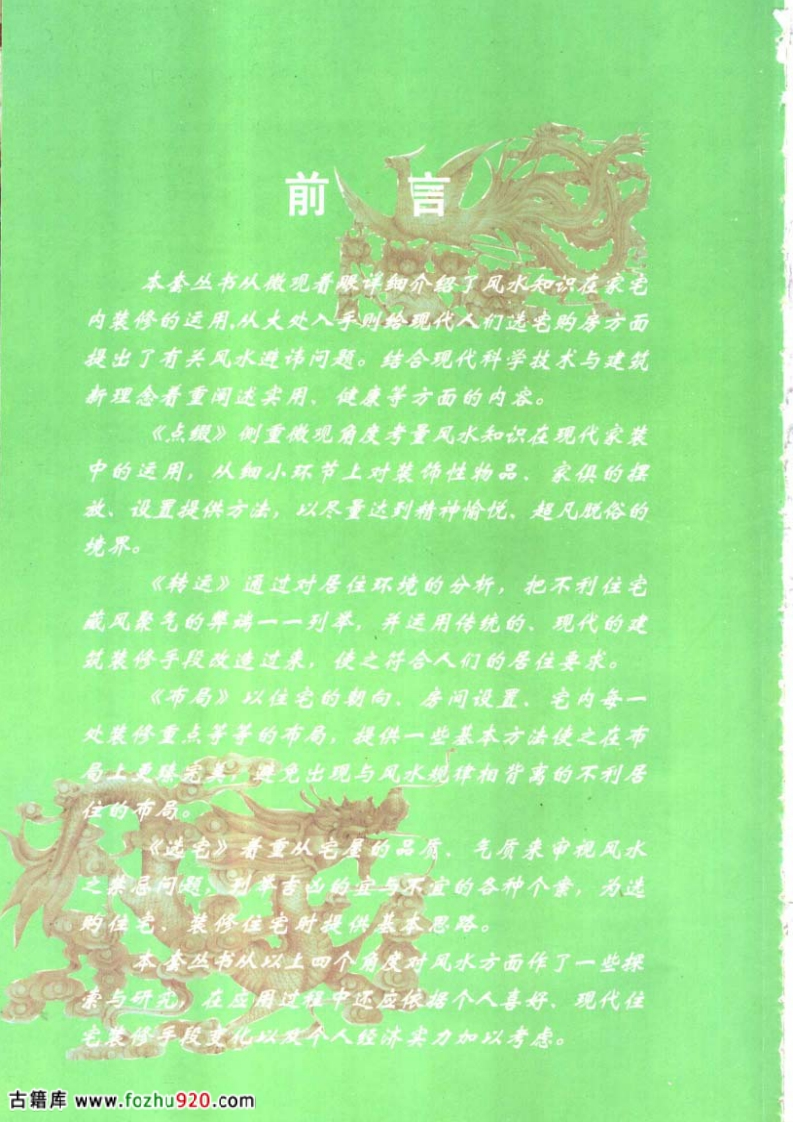 前 言
本套丛书从微观着眼详细介绍了风水知识在家宅
内装修的运用,从大处入手则给现代人们选宅购房方面
提出了有关风水避讳问题。结合现代科学技术与建筑
新理念着重阐述实用、健康等方面的内容。
《点缀》侧重微观角度考量风水知识在现代家装
中的运用，从细小环节上对装饰性物品、家俱的摆
放、设置提供方法，以尽量达到精神愉悦、超凡脱俗的
境界。
《转运》通过对居住环境的分析，把不利住宅
藏风聚气的弊端一一列举，并运用传统的、现代的建
筑装修手段改造过来，使之符合人们的居住要求。
《布局》以住宅的朝向、房间设置、宅内每一
处装修重点等等的布局，提供一些基本方法使之在布
局上更臻完美，避免出现与风水规律相背离的不利居
住的布局。
《选宅》着重从宅屋的品质、气质来审视风水
之禁忌问题，列举吉凶的宜与不宜的各种个案，为选
购住宅、装修住宅时提供基本思路。
本套丛书从以上四个角度对风水方面作了一些探
索与研究，在应用过程中还应依据个人喜好、现代住
宅装修手段变化以及个人经济实力加以考虑。
古籍库 www.fozhu920.com